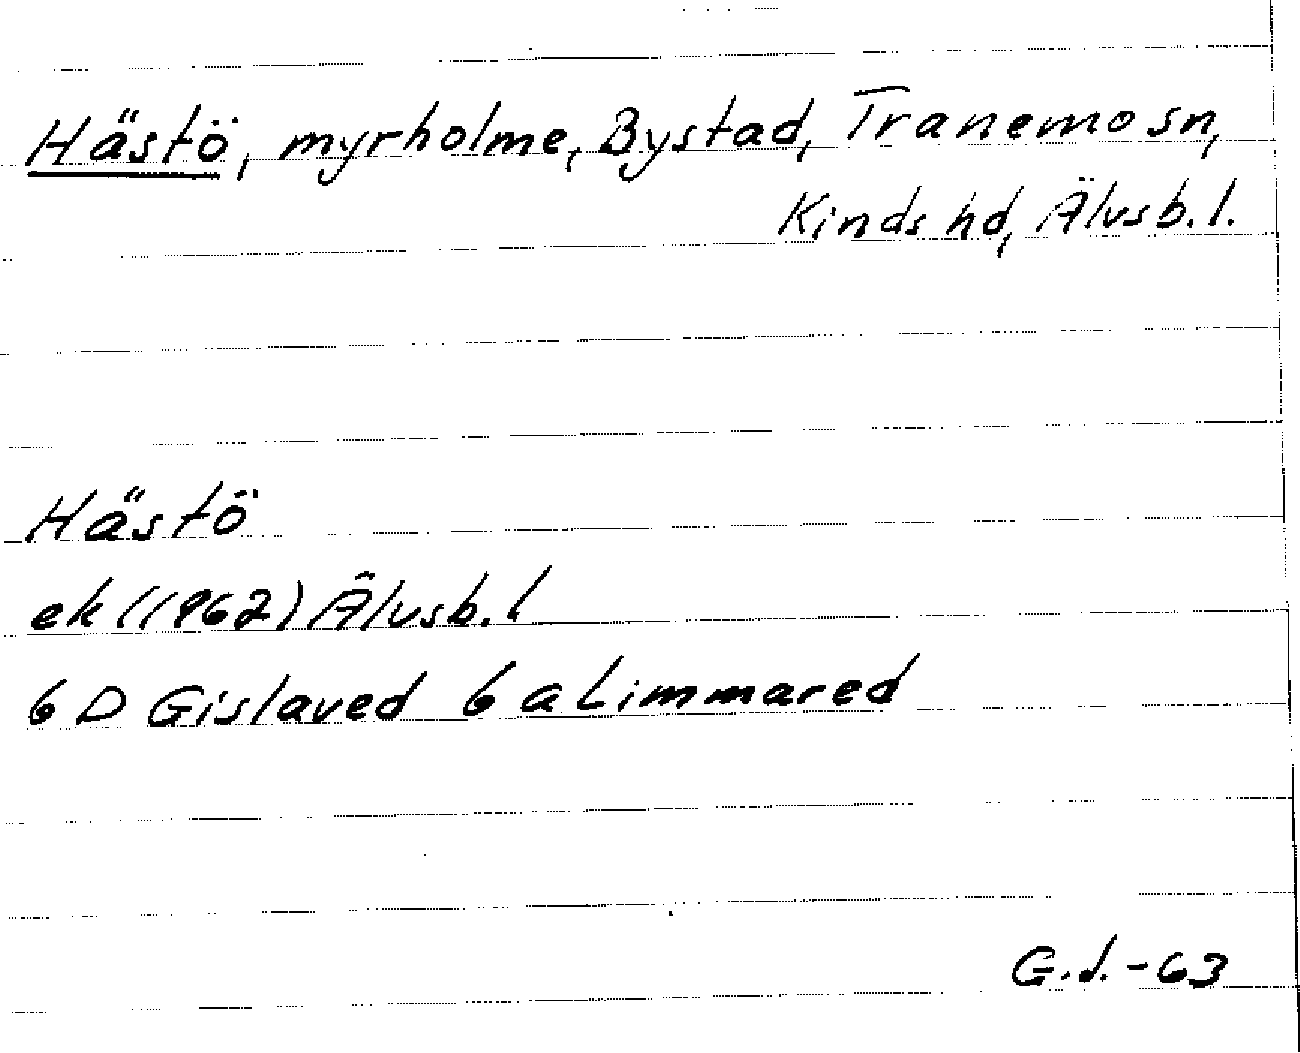 Hästö, myrholme, Bystad, Tranemo sn,
Kinds hd, Älvsb. l.
Hästö
ek (1962) Älvsb. l
6 D Gislaved 6 a Limmared
G.d. -63